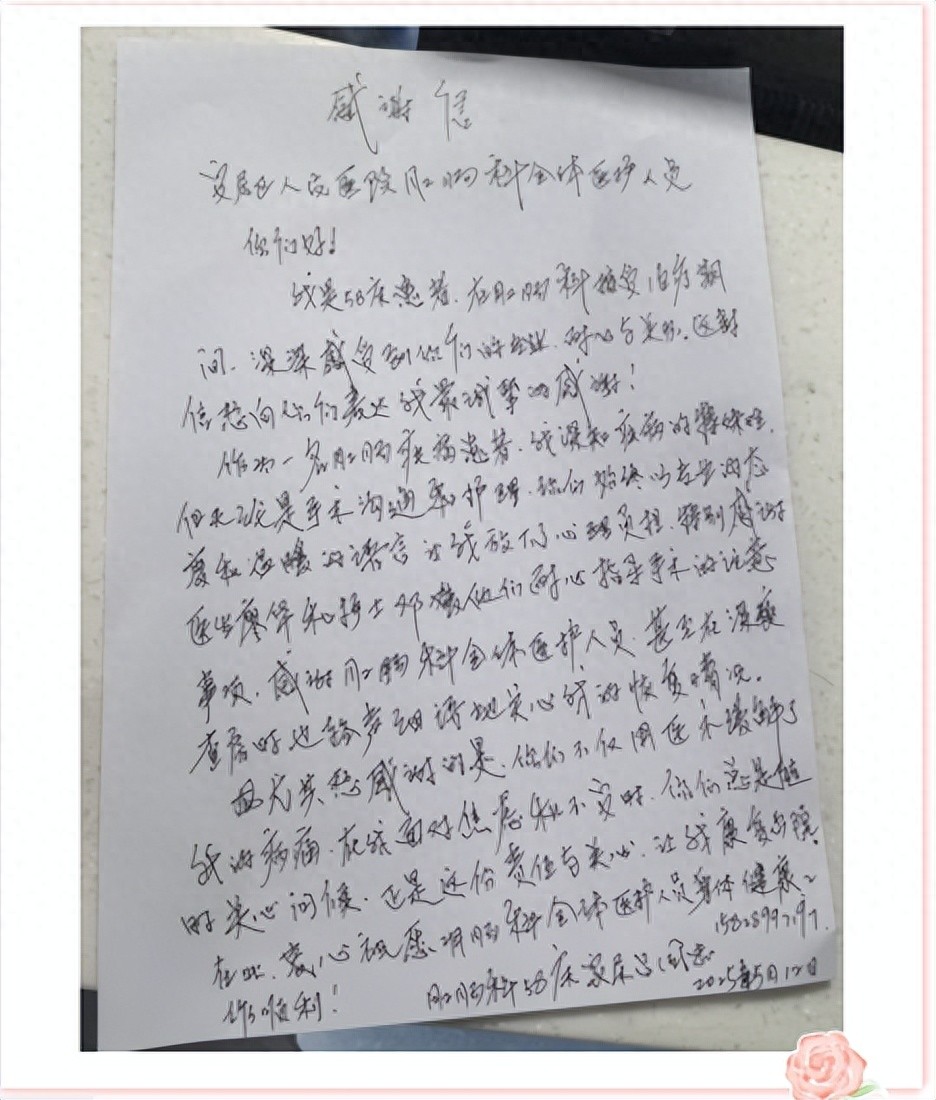 感谢信
安居区人民医院肛肠科全体医护人员
你们好!
我是58床患者.在肛肠科接受治疗期
间.深深感受到你们的专业.耐心与关怀.这封
信想向你们表达我最诚挚的感谢!
作为一名肛肠疾病患者.我深知疾病的特殊性.
但无论是手术沟通和护理.你们始终以专业的态
度和温暖的语言让我放下了心理负担.特别感谢
医生廖华和护士邓 他们耐心指导手术的注意
事项.感谢肛肠科全体医护人员.甚至在深夜
查房时也轻声细语地关心我的恢复情况。
尤其想感谢的是.你们不仅用医术缓解了
我的病痛.在我面对焦虑和不安时.你们总是
时关心问候.正是这份责任与关心.让我康复出院.
在此.衷心祝愿肛肠科全体医护人员身体健康.工
作顺利!
肛肠科58床家属
2025年5月12日